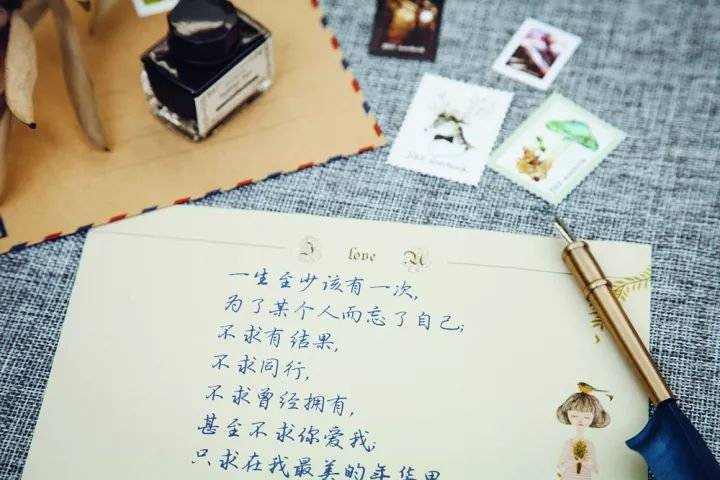 I love U
一生至少该有一次,
为了某个人而忘了自己;
不求有结果,
不求同行,
不求曾经拥有,
甚至不求你爱我;
只求在我最美的年华里